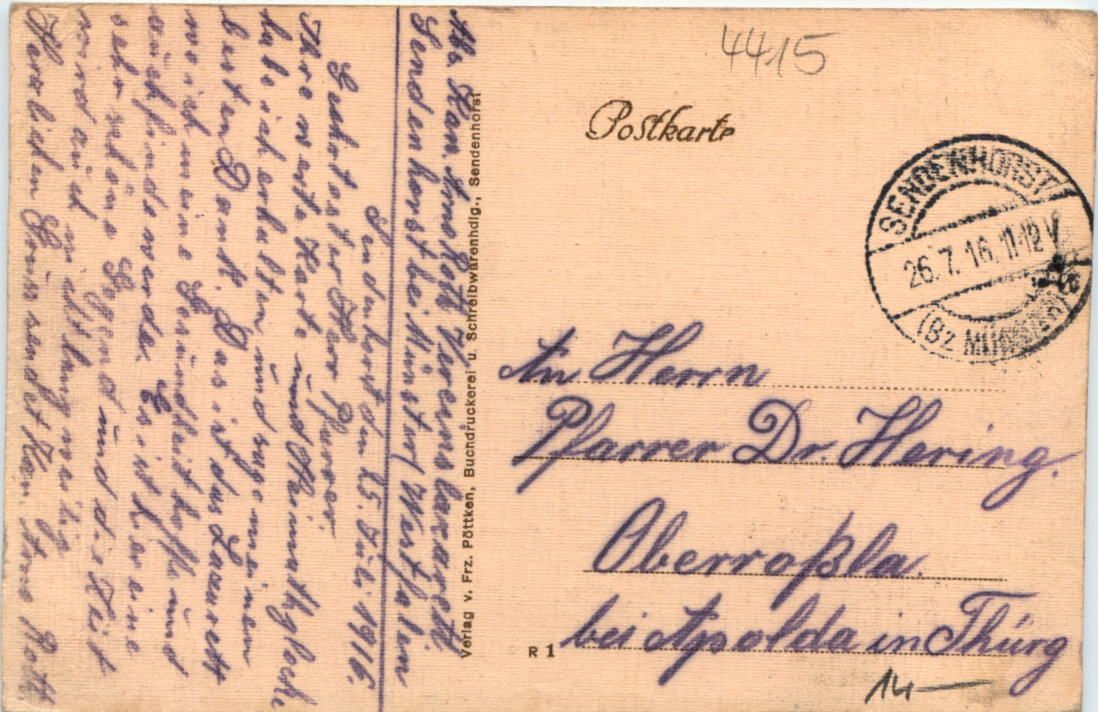 4415
Postkarte
SENDENHORST
26.7.16.11-12V.
(Bz MÜNSTER)
An Herrn
Pfarrer Dr. Hering.
Oberroßla.
bei Apolda in Thürg
14 —
R 1
Verlag v. Frz. Pöttken, Buchdruckerei u. Schreibwarenhdlg., Sendenhorst
Abs. Kan. Arno Roth Vereinslazareth
Sendenhorst bei Münster/Westfalen
Sendenhorst den 25. Juli. 1916.
Geehrtester Herr Pfarrer.
Ihre werte Karte und Heimathglocke
habe ich erhalten und sage meinen
besten Dank. Das ist das Lazarett
wo ich meine Gesundheit hoffe und
auch finde werde. Es ist hier eine
sehr schöne Gegend und die Zeit
wird auch nicht langweilig
Herzlichen Gruss sendet Kan. Arno Roth